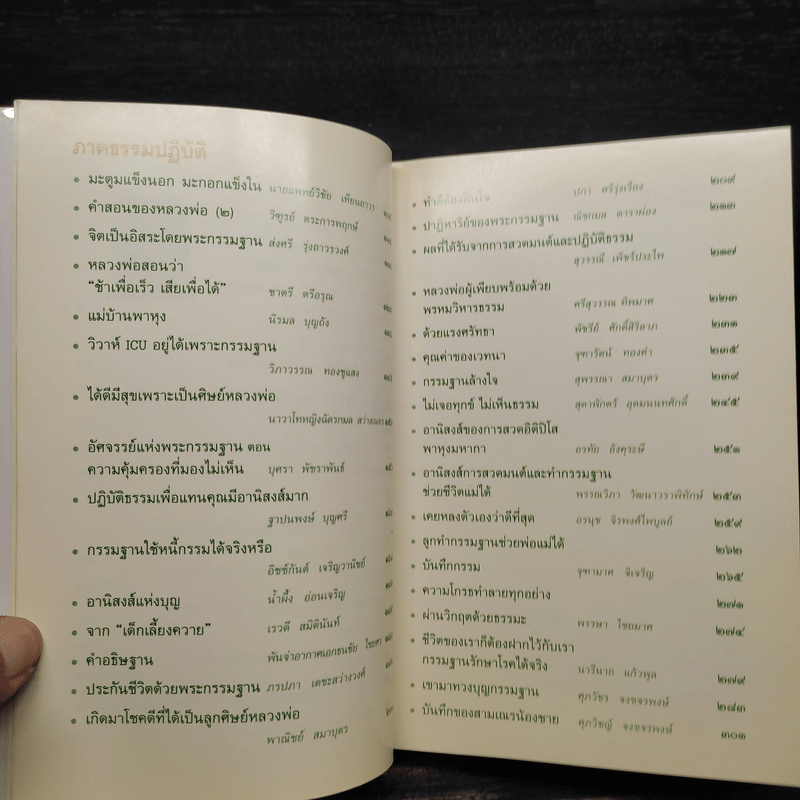 ภาคธรรมปฏิบัติ
• มะตูมแข็งนอก มะกอกแข็งใน นายแพทย์วิชัย เทียนถาวร
• คำสอนของหลวงพ่อ (๒) วิฑูรย์ ตระการพฤกษ์
• จิตเป็นอิสระโดยพระกรรมฐาน ส่งศรี รุ่งถาวรวงศ์
• หลวงพ่อสอนว่า
“ช้าเพื่อเร็ว เสียเพื่อได้” ชาตรี ตรีอรุณ
• แม่บ้านพาหุง นิรมล บุญถัง
• วิวาห์ ICU อยู่ได้เพราะกรรมฐาน
วิภาวรรณ ทองชูแสง
• ได้ดีมีสุขเพราะเป็นศิษย์หลวงพ่อ
นาวาโทหญิงฉัตรกมล
• อัศจรรย์แห่งพระกรรมฐาน ตอน
ความคุ้มครองที่มองไม่เห็น บุศรา พัชราพันธ์
• ปฏิบัติธรรมเพื่อแทนคุณมีอานิสงส์มาก
ฐาปนพงษ์ บุญศรี
• กรรมฐานใช้หนี้กรรมได้จริงหรือ
อิชช์กันต์ เจริญวานิชย์
• อานิสงส์แห่งบุญ น้ำผึ้ง อ่อนเจริญ
• จาก “เด็กเลี้ยงควาย” เรวดี สมิตินันท์
• คำอธิษฐาน พันจ่าอากาศเอกธนชัย
• ประกันชีวิตด้วยพระกรรมฐาน ภรปภา เตชะสว่างวงศ์
• เกิดมาโชคดีที่ได้เป็นลูกศิษย์หลวงพ่อ
พาณิชย์ สมาบุตร
• ทำดีต้องฝืนใจ ปภา ศรีรุ่งเรือง ๒๐๙
• ปาฏิหาริย์ของพระกรรมฐาน ณัชกมล ดาราผ่อง ๒๑๓
• ผลที่ได้รับจากการสวดมนต์และปฏิบัติธรรม
สุวรรณี เพ็ชร์ประไพ ๒๑๗
• หลวงพ่อผู้เพียบพร้อมด้วย
พรหมวิหารธรรม ศรีสุวรรณ ทิพมาศ ๒๒๓
• ด้วยแรงศรัทธา พัชรีย์ ศักดิ์สิริลาภ ๒๓๑
• คุณค่าของเวทนา จุฑารัตน์ ทองคำ ๒๓๕
• กรรมฐานล้างใจ สุพรรณา สมาบุตร ๒๓๙
• ไม่เจอทุกข์ ไม่เห็นธรรม สุดาพักตร์ อุดมนนทศักดิ์ ๒๔๕
• อานิสงส์ของการสวดอิติปิโส
พาหุงมหากา อรทัย อังคุระษี ๒๕๑
• อานิสงส์การสวดมนต์และทำกรรมฐาน
ช่วยชีวิตแม่ได้ พรรณวิภา วัฒนาวราพิทักษ์ ๒๕๓
• เคยหลงตัวเองว่าดีที่สุด อรนุช จิรพงศ์ไพบูลย์ ๒๕๙
• ลูกทำกรรมฐานช่วยพ่อแม่ได้ ๒๖๒
• บันทึกกรรม จุฑามาศ จิเจริญ ๒๖๕
• ความโกรธทำลายทุกอย่าง ๒๗๑
• ผ่านวิกฤตด้วยธรรมะ พรรษา ไชยมาศ ๒๗๔
• ชีวิตของเราก็ต้องฝากไว้กับเรา
กรรมฐานรักษาโรคได้จริง นารีนาถ แก้วพูล ๒๗๙
• เขามาทวงบุญกรรมฐาน ศุภวัชร จงขจรพงษ์ ๒๘๓
• บันทึกของสามเณรน้องชาย ศุภวิชญ์ จงขจรพงษ์ ๓๐๑